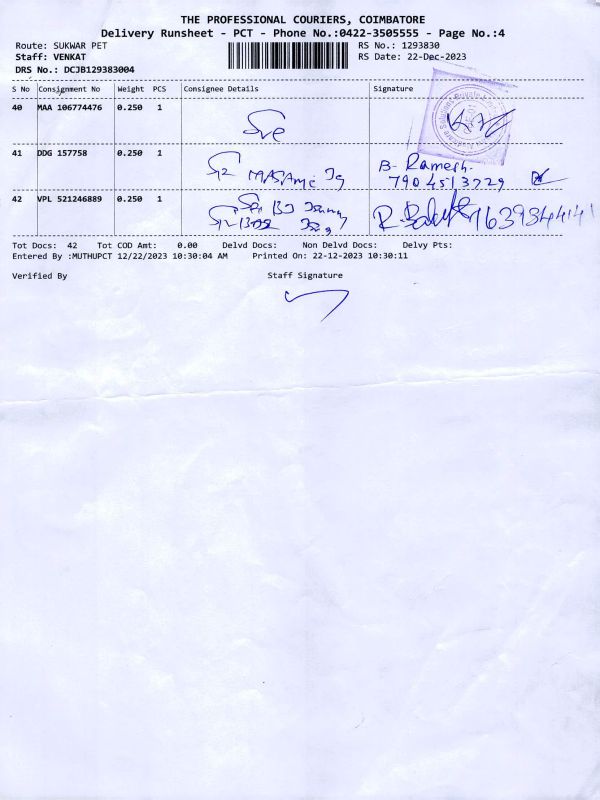 THE PROFESSIONAL COURIERS, COIMBATORE
Delivery Runsheet - PCT - Phone No.:0422-3505555 - Page No.:4
Route: SUKWAR PET RS No.: 1293830
Staff: VENKAT RS Date: 22-Dec-2023
DRS No.: DCJB129383004
S No Consignment No Weight PCS Consignee Details Signature
40 MAA 106774476 0.250 1
41 DDG 157758 0.250 1
B. Ramesh.
7904513729
42 VPL 521246889 0.250 1
Tot Docs: 42 Tot COD Amt: 0.00 Delvd Docs: Non Delvd Docs: Delvy Pts:
Entered By :MUTHUPCT 12/22/2023 10:30:04 AM Printed On: 22-12-2023 10:30:11
Verified By Staff Signature